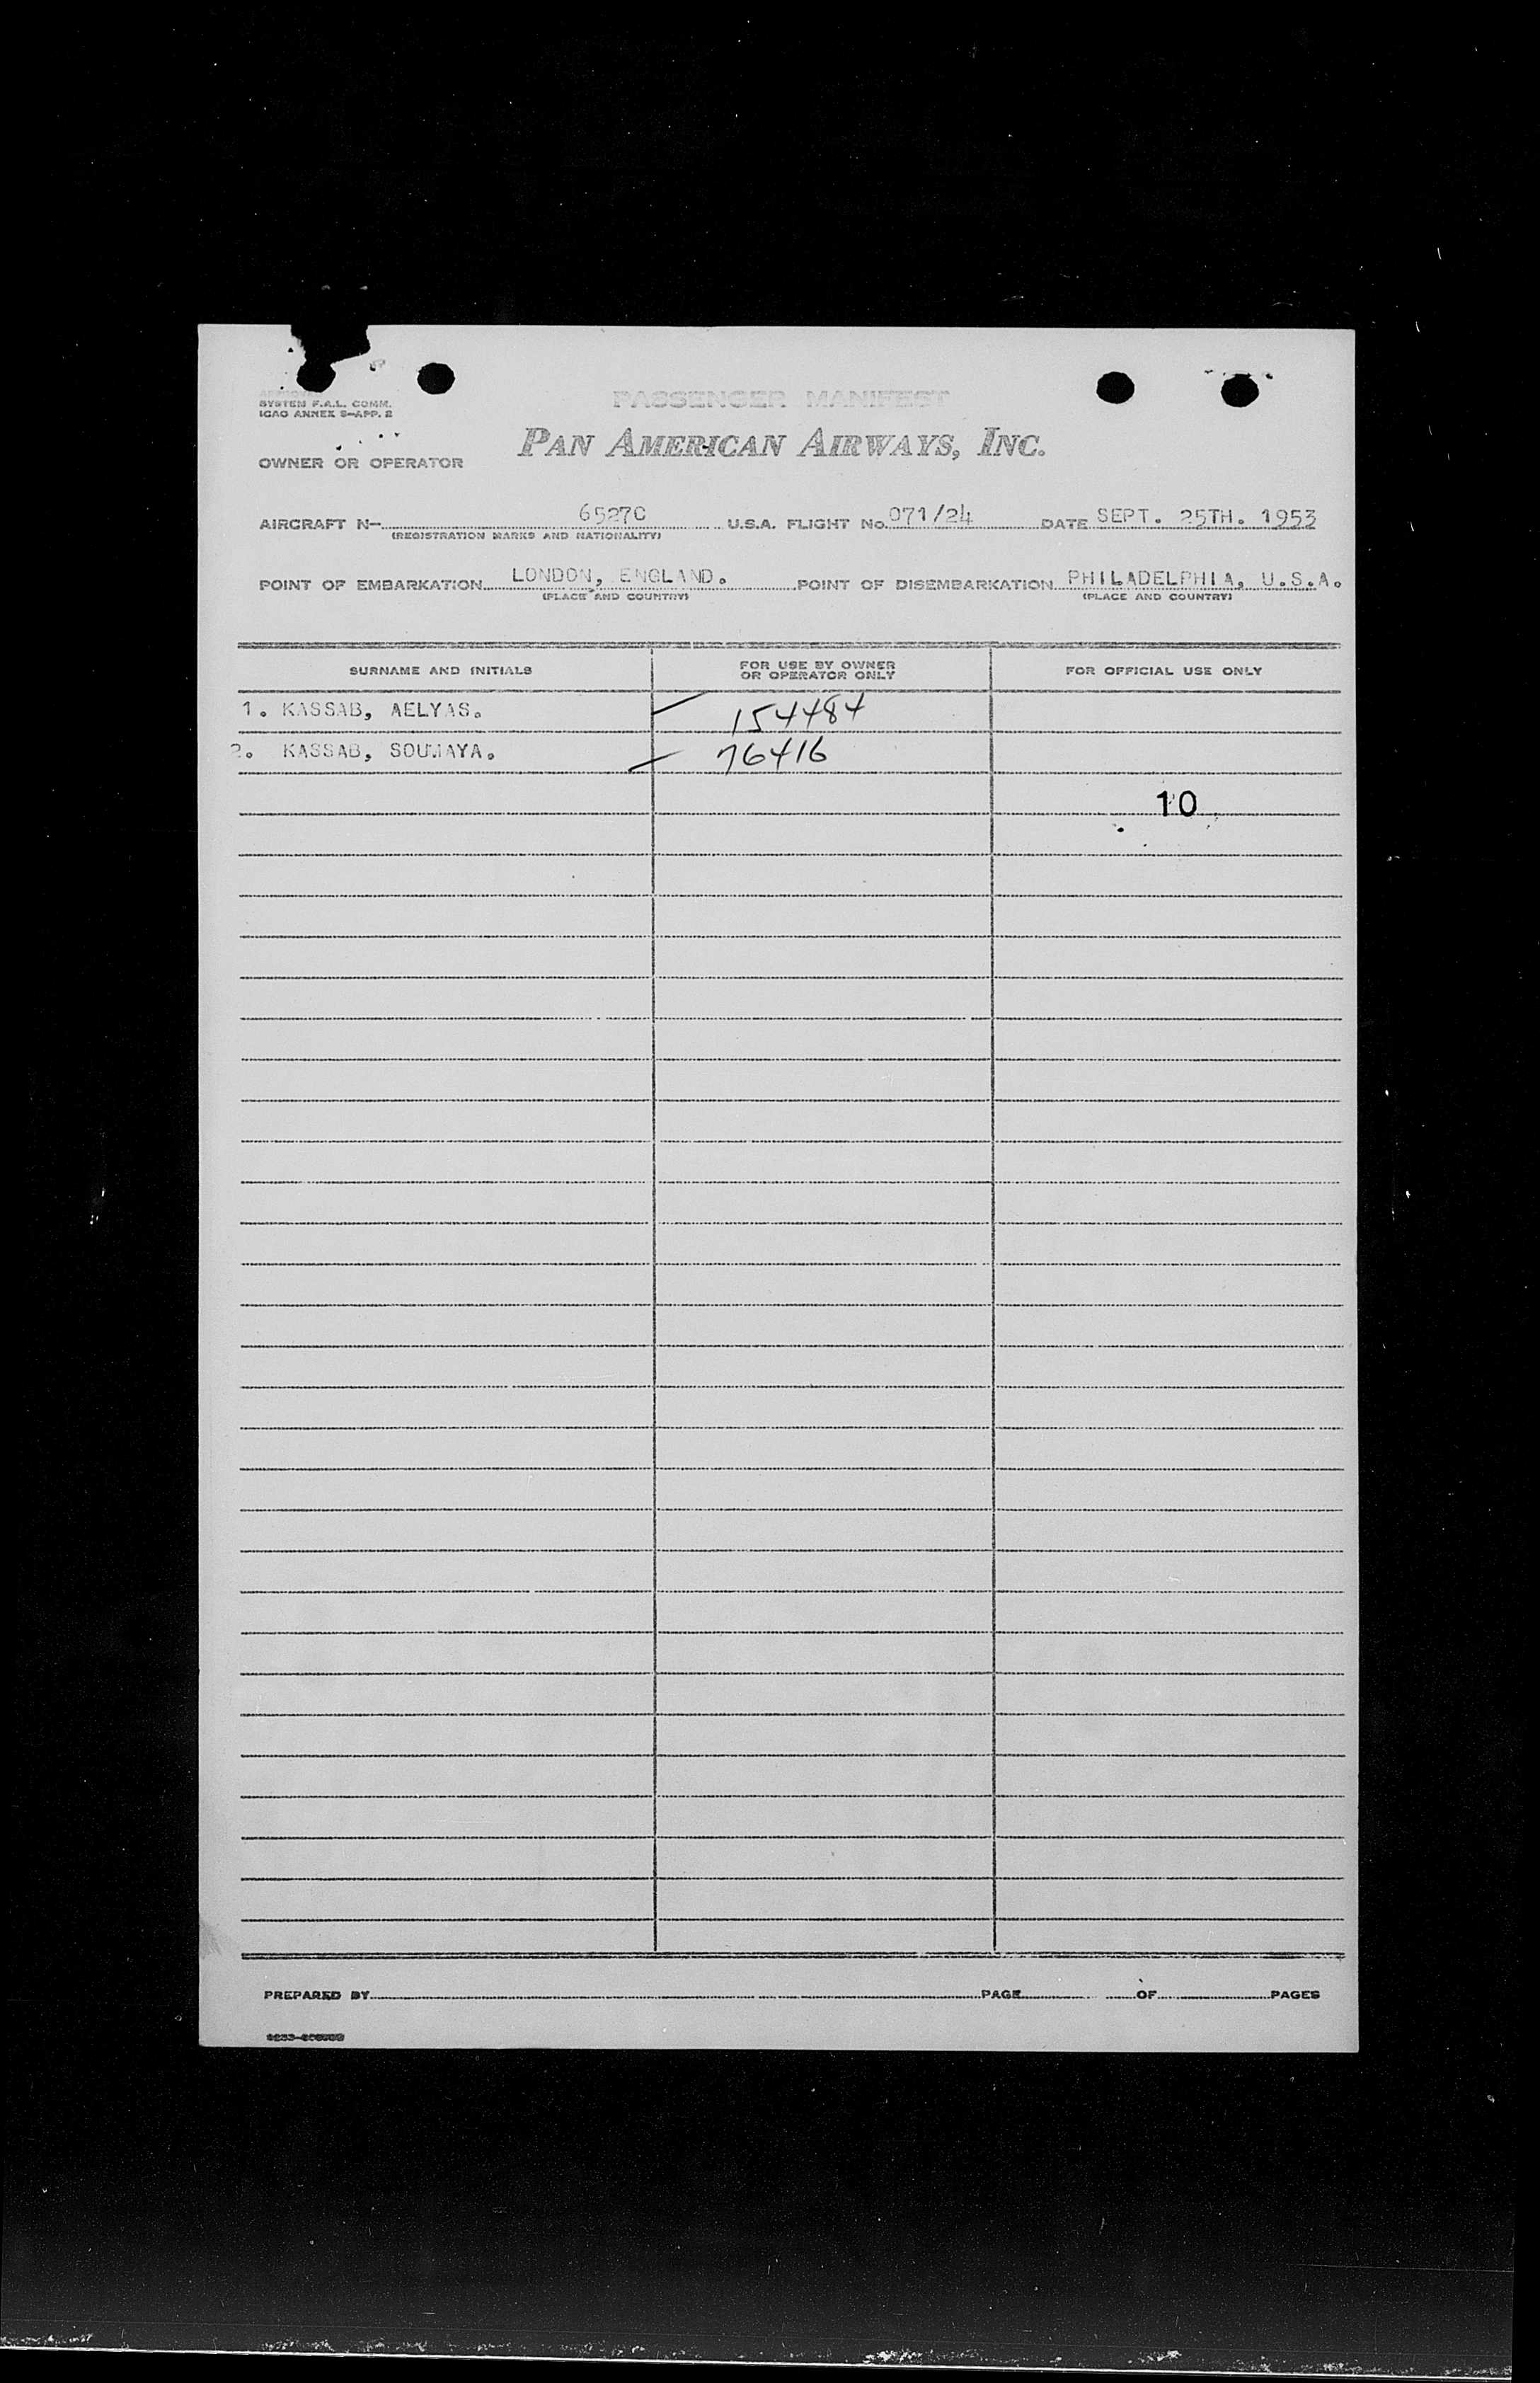 SYSTEM F.A.L. COMM.
ICAO ANNEX 9-APP. 2
PASSENGER MANIFEST
PAN AMERICAN AIRWAYS, INC.
OWNER OR OPERATOR
AIRCRAFT N- 6527C U.S.A. FLIGHT No. 071/24 DATE SEPT. 25TH. 1953
(REGISTRATION MARKS AND NATIONALITY)
POINT OF EMBARKATION LONDON, ENGLAND. POINT OF DISEMBARKATION PHILADELPHIA, U.S.A.
(PLACE AND COUNTRY) (PLACE AND COUNTRY)
SURNAME AND INITIALS FOR USE BY OWNER OR OPERATOR ONLY FOR OFFICIAL USE ONLY
1. KASSAB, AELYAS. 154484
2. KASSAB, SOUMAYA. 76416
10
PREPARED BY PAGE OF PAGES